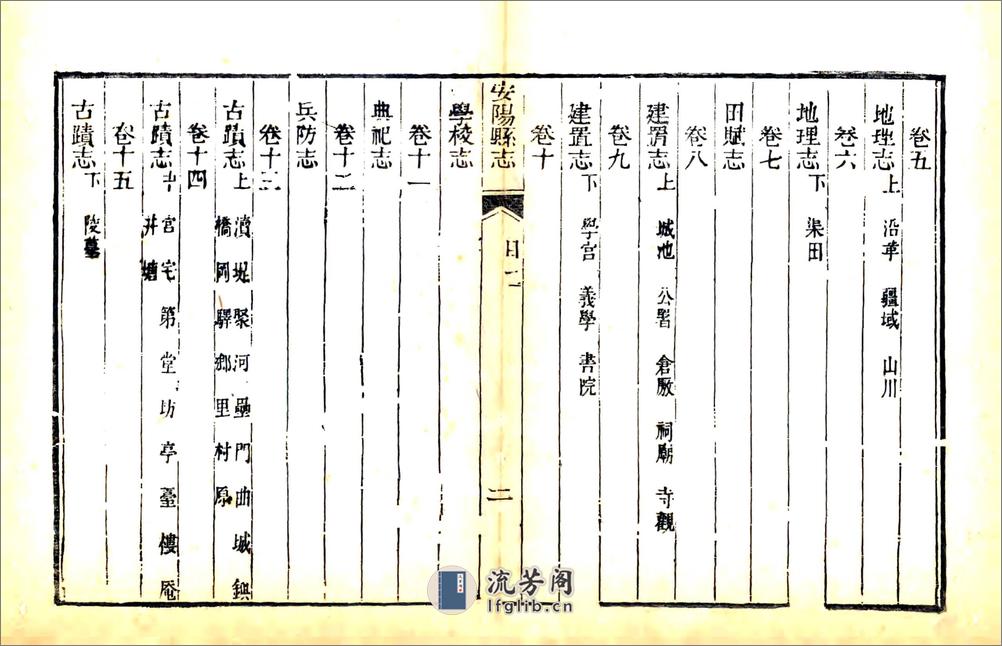 卷五
地理志上 沿革 疆域 山川
卷六
地理志下 渠田
卷七
田賦志
卷八
建置志上 城池 公署 倉厫 祠廟 寺觀
卷九
建置志下 學宮 義學 書院
卷十
安陽縣志 目二 二
學校志
卷十一
典祀志
卷十二
兵防志
卷十三
古蹟志上 瀆堤聚河壘門曲城鎮
橋岡驛鄉里村原
卷十四
古蹟志中 宮宅第堂坊亭臺樓庵
井塘
卷十五
古蹟志下 陵墓
流芳阁
lfglib.cn